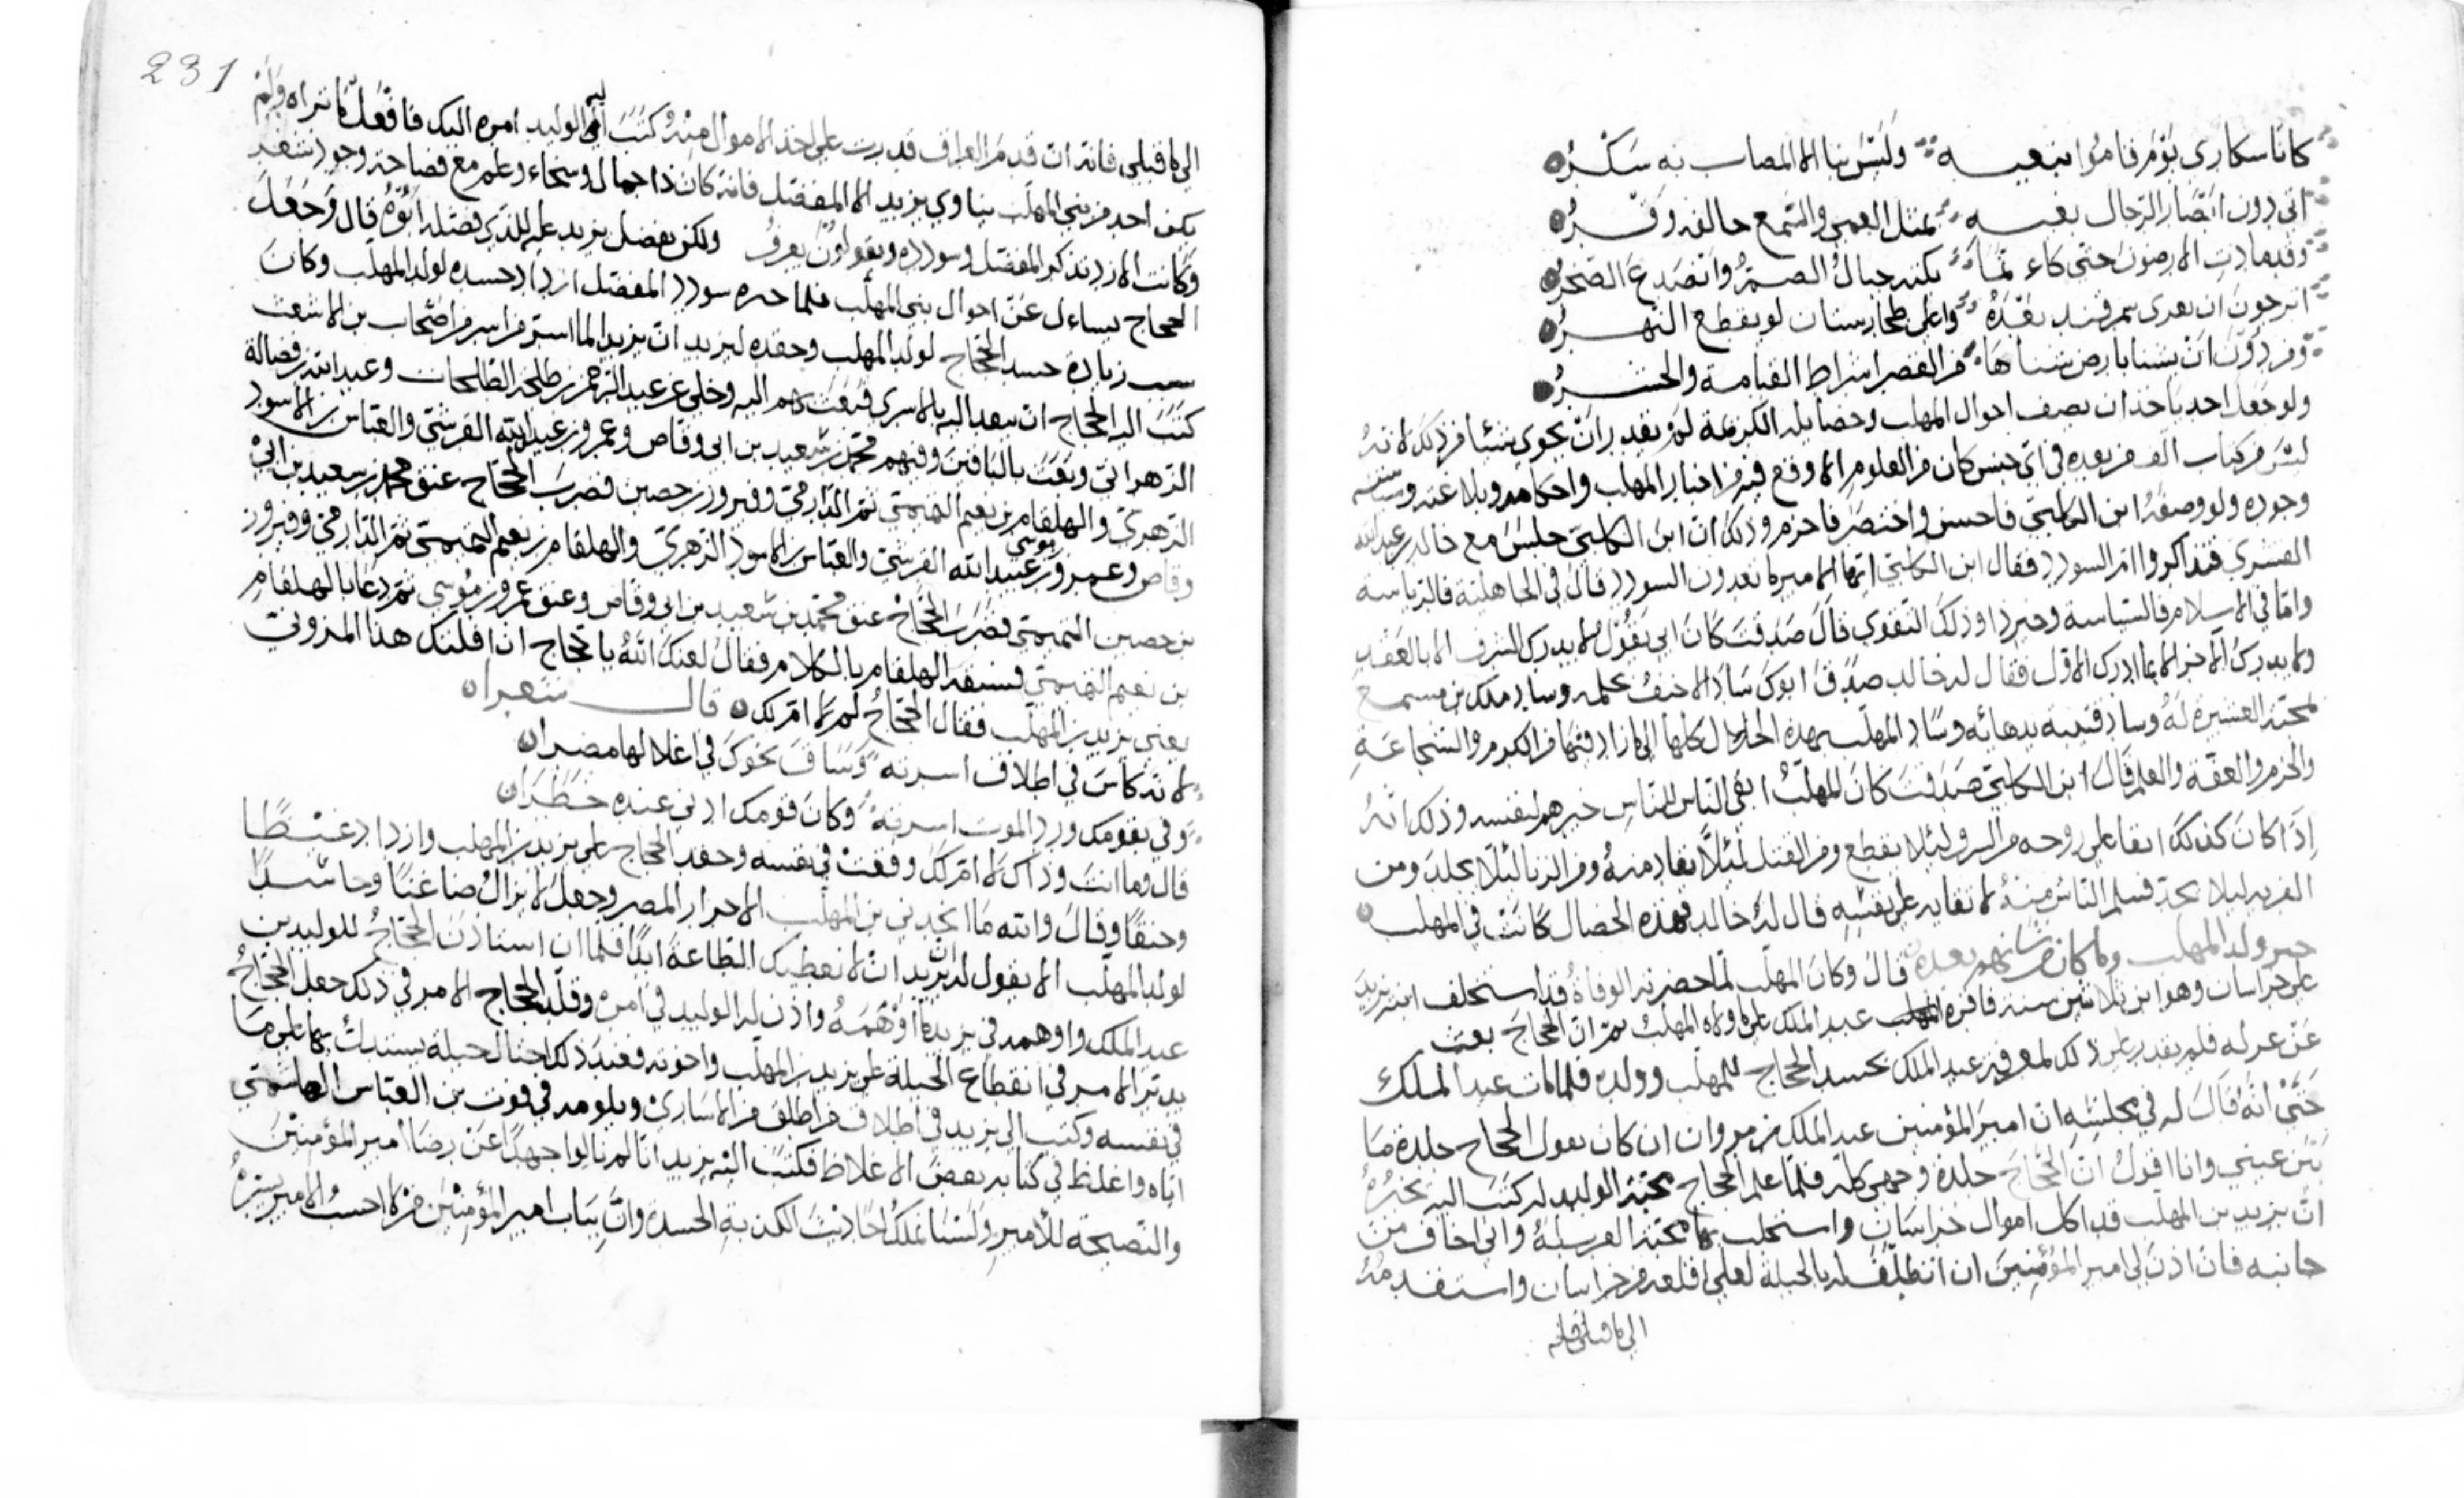 كانا سكارى يوم قاموا بنعيه وليس بنا الا المصاب به سكر
اتى دون ابصار الرجال بعيه بمثل العمى والسمع حالفه وقر
وقد مادت الارضون حتى كانما بكته جبال الصم وانصدع الصخر
اترجون ان يعرى سمرقند بعده واعلى طخارستان لو يقطع النهر
ومن دون ان بستا بارض بستاها من القصر اشراط القيامة والحشر
ولو جعل احد ياخذ ان يصف احوال المهلب وخصايله الكريمة لم يقدر ان يحوي شيئا من ذلك لانه
ليس من كتاب الف من بعده في اي جنس كان من العلوم الا وقع فيه من اخبار المهلب واحكامه وبلاغته وسياسته
وجوده ولو وصفه ابن الكلبي فاحسن واختصر فاحزم وذلك ان ابن الكلبي جلس مع خالد بن عبد الله
القسري فتذاكروا امر السودد فقال ابن الكلبي ايها الامير ما تعدون السودد قال في الجاهلية فالرياسة
واما في الاسلام فالسياسة وخير ذا وذلك التقوى قال صدقت كان ابي يقول لا يدرك الشرف الا بالعقد
ولا يدرك الاخر الا بما ادرك الاول فقال له خالد صدق ابوك ساد الاحنف بحلمه وساد ملك بن مسمع
لمحبة العشيرة له وساد قتيبة بدهائه وساد المهلب بهذه الخلال كلها الى ما زاد فيها من الكرم والشجاعة
والحزم والعفة والعلم قال ابن الكلبي صدقت كان المهلب ابقى الناس للناس خيرهم لنفسه وذلك انه
اذا كان كذلك ابقا على روحه من السرق لئلا يقطع ومن القتل لئلا يقاد منه ومن الزنا لئلا يجلد ومن
الفرية ليلا يحد فسلم الناس منه لابقايه على نفسه قال له خالد فهذه الخصال كانت في المهلب
خبر ولد المهلب وما كان من شانهم بعده قال وكان المهلب لما حضرته الوفاة قد استخلف ابنه يزيد
على خراسان وهو ابن ثلاثين سنة فاقره عبد الملك على ما ولاه المهلب ثم ان الحجاج بعث
عن عزله فلم يقدر على ذلك لمعرفة عبد الملك بحسد الحجاج للمهلب وولده فلما مات عبد الملك
حتى انه قال له في مجلسه ان امير المؤمنين عبد الملك بن مروان ان كان يقول الحجاج جلدة ما
بين عيني وانا اقول ان الحجاج جلدة وجهي كله فلما علم الحجاج محبة الوليد له كتب اليه يخبره
ان يزيد بن المهلب قد اكل اموال خراسان واستجلب بها محبة العرب له واني اخاف من
جانبه فان اذن لي امير المؤمنين ان اتطلف له بالحيلة لعلي اقلعه من خراسان واستقدمه
الى ما قبلي فانه
231
الى ما قبلي فانه ان قدم العراق قدرت على اخذ الاموال منه كتب اليه الوليد امره اليك فافعل ما تراه ولم
يكن احد من بني المهلب يناوي يزيد الا المفضل فانه كان ذا جمال وسخاء وعلم مع فصاحة وجود شعر
وكانت الازد تذكر المفضل وسودده ويقولون يعرف ولكن يفضل يزيد عليه للذي فضله ابوه قال وجعل
الحجاج يساءل عن احوال بني المهلب فلما خبره سودد المفضل ازداد حسده لولد المهلب وكان
سبب زيادة حسد الحجاج لولد المهلب وحقده ليزيد ان يزيد لما استر من اسر من اصحاب بن الاشعث
كتب اليه الحجاج ان يبعث اليه بالاسرى فبعث بهم اليه وخلى عن عبد الرحمن بن طلحة الطلحات وعبد الله بن فضالة
الزهراني وبعث بالباقين وفيهم محمد بن سعيد بن ابي وقاص وعمرو بن عبيد الله القرشي والعباس بن الاسود
الزهري والهلقام بن نعيم التميمي ثم الدارمي وفيروز بن حصين فضرب الحجاج عنق محمد بن سعيد بن ابي
وقاص وعمرو بن موسى عبيد الله القرشي والعباس بن الاسود الزهري والهلقام بن نعيم التميمي ثم الدارمي وفيروز
بن حصين التميمي فضرب الحجاج عنق محمد بن سعيد بن ابي وقاص وعنق عمرو بن موسى ثم دعا بالهلقام
بن نعيم التميمي فسبقه الهلقام بالكلام فقال لعنك الله يا حجاج ان افلتك هذا المزوني
يعني يزيد بن المهلب فقال الحجاج لم لا ام لك قال شعرا
لانه كاس في اطلاق اسرته وساق نحوك في اغلالها مضرا
وقي بقومك ورد الموت اسرته وكان قومك ادنى عنده خطرا
قال وما انت وذاك لا ام لك ووقعت في نفسه وحقد الحجاج على يزيد بن المهلب وازداد غيظا
وحنقا وقال والله ما انجدني بن المهلب الا حرار المصر وجعل لا يزال ضاغنا وحاسدا
لولد المهلب الا يقول له ان يزيد ان لا نعطيك الطاعة ابدا فلما ان استاذن الحجاج للوليد بن
عبد الملك واوهمه في يزيد ما اوهمه واذن له الوليد في امره وقلد الحجاج الامر في ذلك جعل الحجاج
يدبر الامر في انقطاع الحيلة على يزيد بن المهلب واخوته فعند ذلك احتال حيلة يستدل بها على ما
في نفسه وكتب الى يزيد في اطلاق من اطلق من الاسارى ويلومه في فوت بن العباس الهاشمي
اياه واغلظ في كتابه بعض الاغلاظ فكتب اليه يزيد انا لم نالوا جهدا عن رضا امير المؤمنين
والنصيحة للامير ولسنا نملك احاديث الكذبة الحسدة وان بباب امير المؤمنين من لا احسب الامير يستره